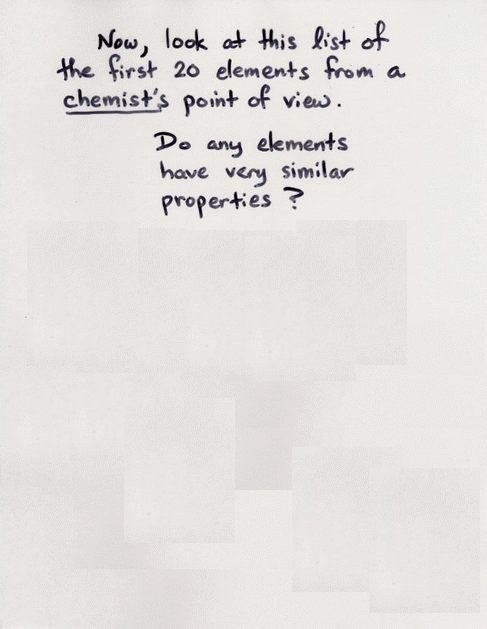 Now, look at this list of
the first 20 elements from a
chemist's point of view.
Do any elements
have very similar
properties?